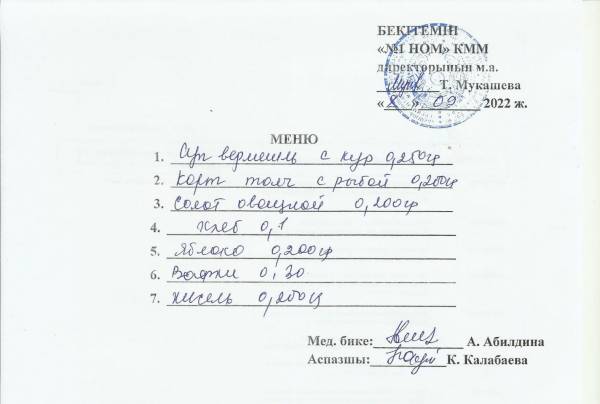 БЕКІТЕМІН
«№1 НОМ» КММ
директорының м.а.
Т. Мукашева
« 8 » 09 2022 ж.
МЕНЮ
1. Суп вермишль с кур 0,250гр
2. Карт толч с рыбой 0,200гр
3. Солат овощной 0,200гр
4. Хлеб 0,1
5. Яблоко 0,200гр
6. Вафли 0,30
7. Кисель 0,200гр
Мед. бике: А. Абилдина
Аспазшы: К. Калабаева